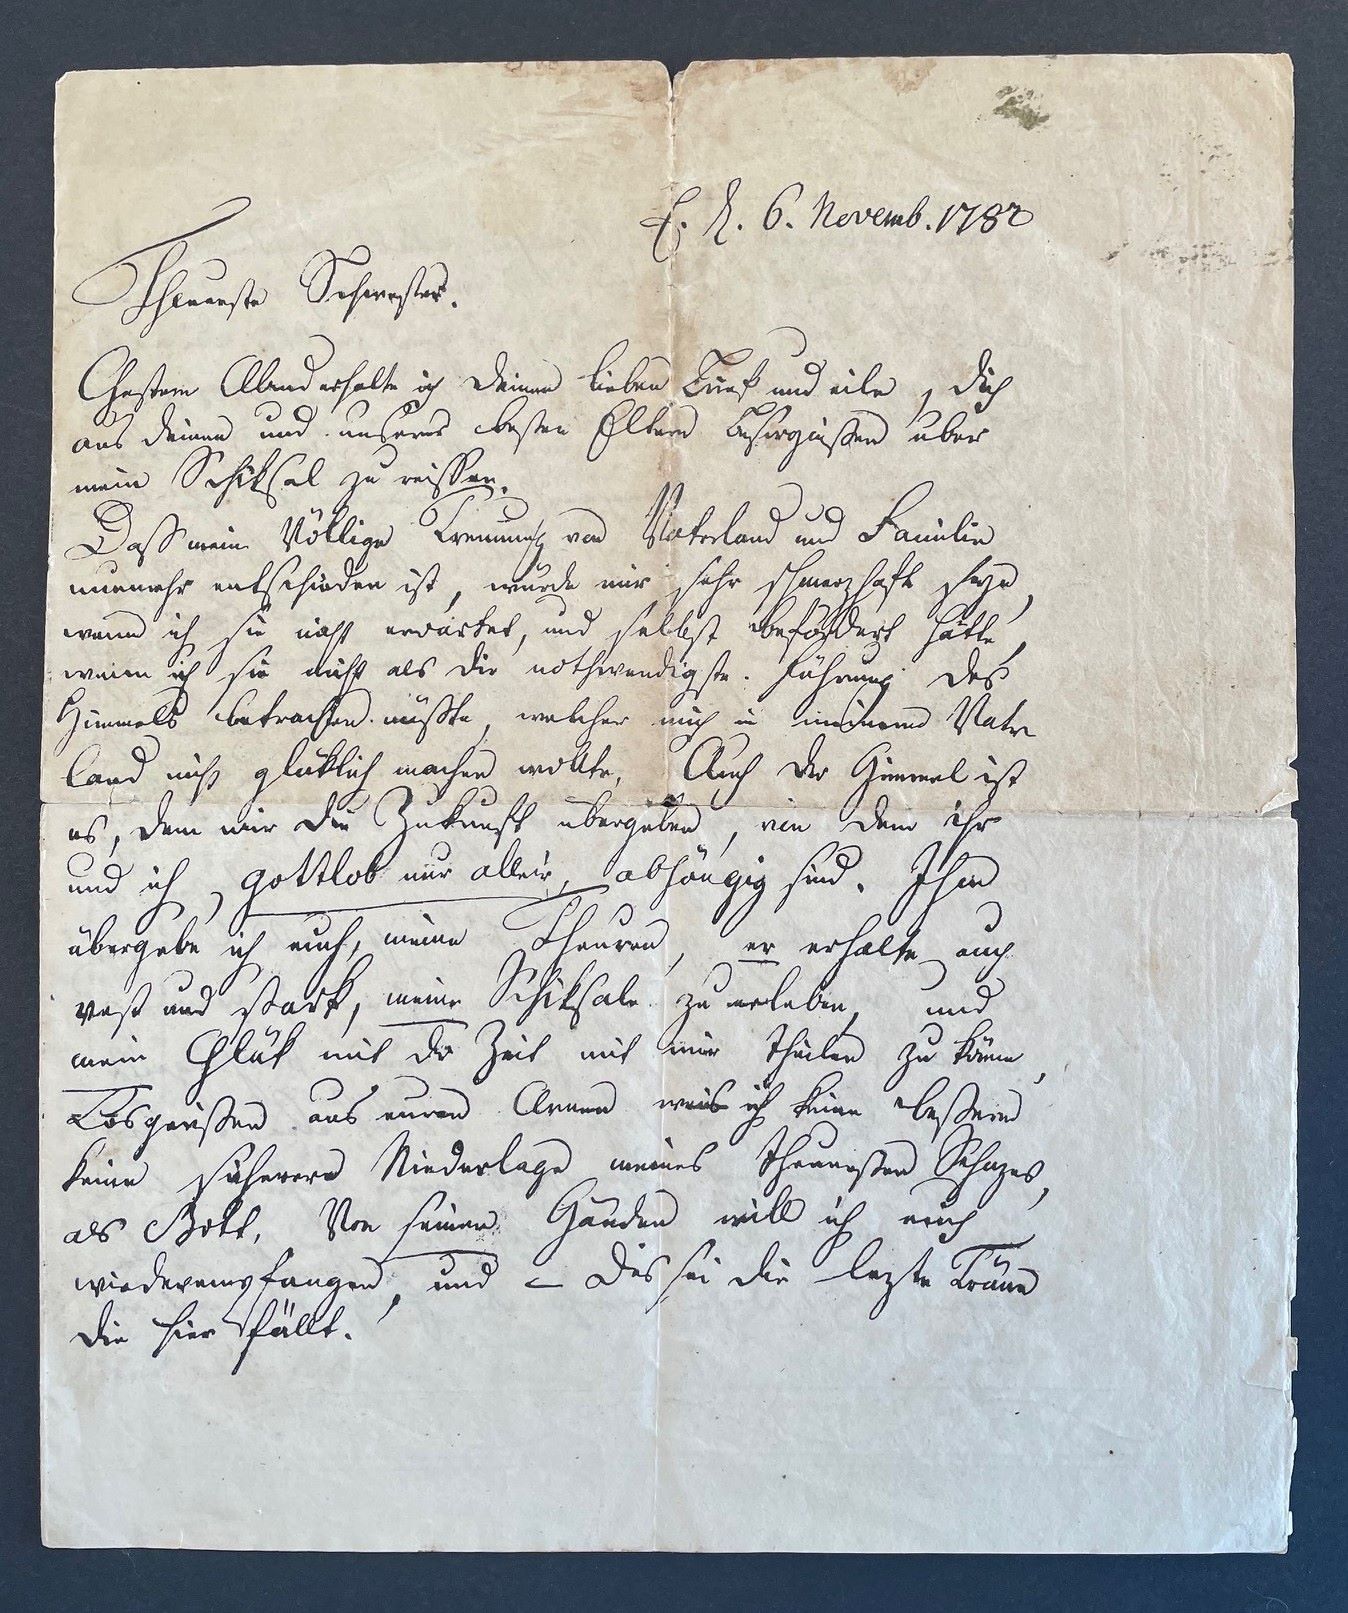 E. d. 6. Novemb. 1782
Theuerste Schwester.
Gestern Abend erhalte ich deinen lieben Brief und eile, dich
aus deinen und unserer besten Eltern Besorgnissen über
mein Schiksal zu reissen.
Daß mein Völlige Trennung von Vaterland und Familie
nunmehr entschieden ist, würde mir sehr schmerzhaft seyn,
wenn ich sie nicht erwartet, und selbst befördert hätte,
wenn ich sie nicht als die nothwendigste Führung des
Himmels betrachten müßte, welcher mich in meinem Vater
land nicht glüklich machen wollte. Auch der Himmel ist
es, dem wir die Zukunft übergeben, von dem ihr
und ich, gottlob nur allein, abhängig sind. Ihm
übergebe ich euch, meine Theuren, er erhalte euch
vest und stark, meine Schiksale zu erleben, und
mein Glük mit der Zeit mit mir theilen zu können,
Losgerißen aus euren Armen weis ich keine beßere
keine sicherere Niederlage meines theuersten Schazes,
als Gott. Von seinen Händen will ich euch
wiederempfangen, und – das sei die lezte Träne
die hier fällt.